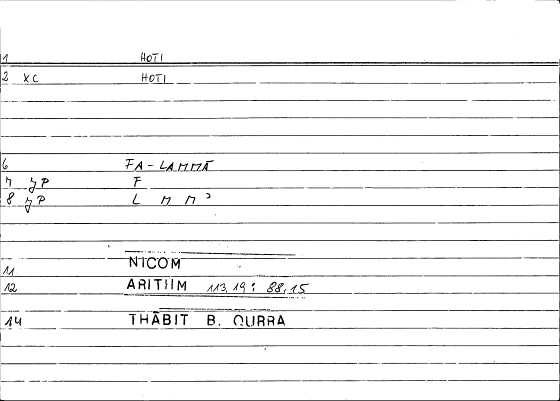 1 HOTI
2 XC HOTI
6 FA-LAMMĀ
7 JP F
8 JP L M M ʾ
11 NICOM
12 ARITHM 113,19: 88,15
14 THĀBIT B. QURRA